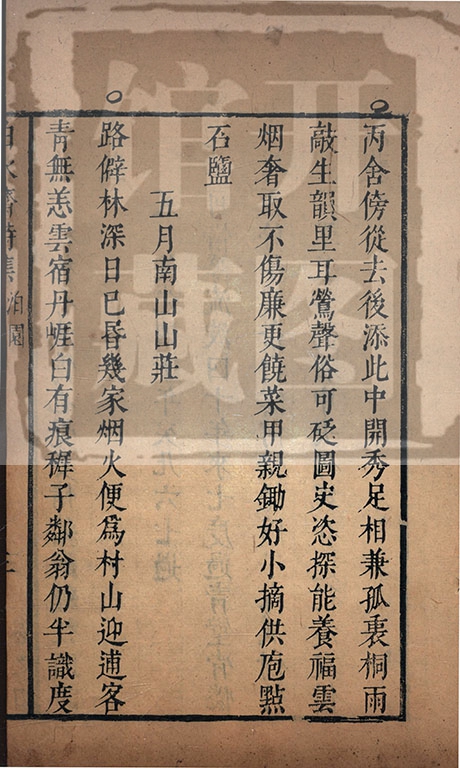 丙舍傍從去後添此中開秀足相兼孤裏桐雨
敲生韻里耳鶯聲俗可砭圖史恣探能養福雲
烟奢取不傷廉更饒菜甲親鋤好小摘供庖點
石鹽
五月南山山莊
路僻林深日已昏幾家烟火便爲村山迎逋客
青無恙雲宿丹崕白有痕穉子鄰翁仍半識度
白水齋詩集 泊園
開圖
館藏